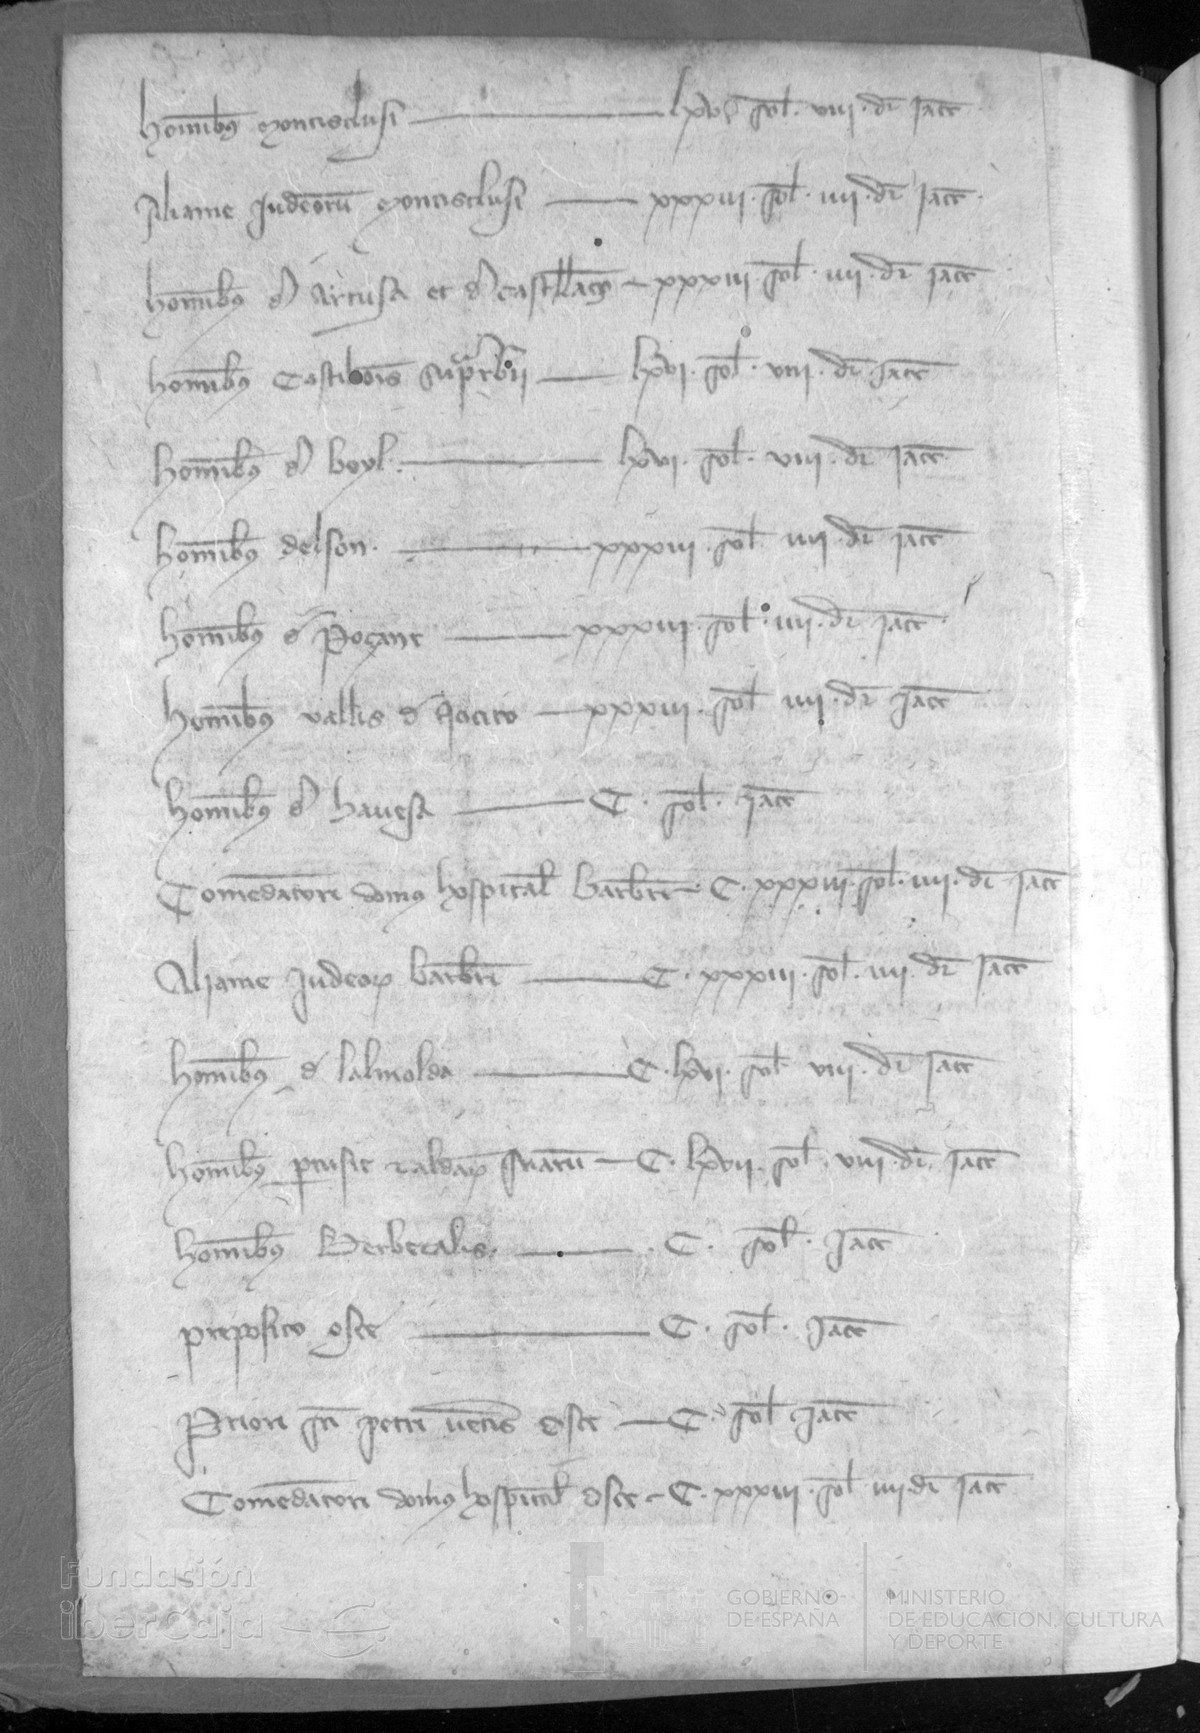 hominibꝯ Montisclusi — lxvi sol. viii. dr̄ iacc̄
Aliame Judeorū Montisclusi — xxxiii. sol. iiii. dr̄ iacc̄.
hominibꝯ d' Artusa et d' — xxxiii. sol. iiii. dr̄ iacc̄
hominibꝯ — lxvi. sol. viii. dr̄ iacc̄
hominibꝯ d' boyl. — lxvi. sol. viii. dr̄ iacc̄
hominibꝯ delson. — xxxiii. sol. iiii. dr̄ iacc̄
hominibꝯ d' Poçant — xxxiii. sol. iiii. dr̄ iacc̄
hominibꝯ vallis d' — xxxiii. sol. iiii. dr̄ iacc̄
hominibꝯ d' — C. sol. iacc̄
Comēdatori domꝯ hospital' Barbr̄i — C. xxxiii. sol. iiii. dr̄ iacc̄
Aliame Judeoꝝ barbr̄i — C. xxxiii. sol. iiii. dr̄ iacc̄
hominibꝯ d' lalmolda — C. lxvi. sol. viii. dr̄ iacc̄
hominibꝯ ꝑtusie — C. lxvii. sol. viii. dr̄. iacc̄
hominibꝯ Berbegalis. — C. sol. iacc̄
preposito osce — C. sol. iacc̄
Priori sc̄i petri vet̄is osce — C. sol iacc̄
Comēdatori domꝯ hospital' osce — C. xxxiii. sol iiii. dr̄ iacc̄
Fundación
iberCaja
GOBIERNO
DE ESPAÑA
MINISTERIO
DE EDUCACIÓN, CULTURA
Y DEPORTE